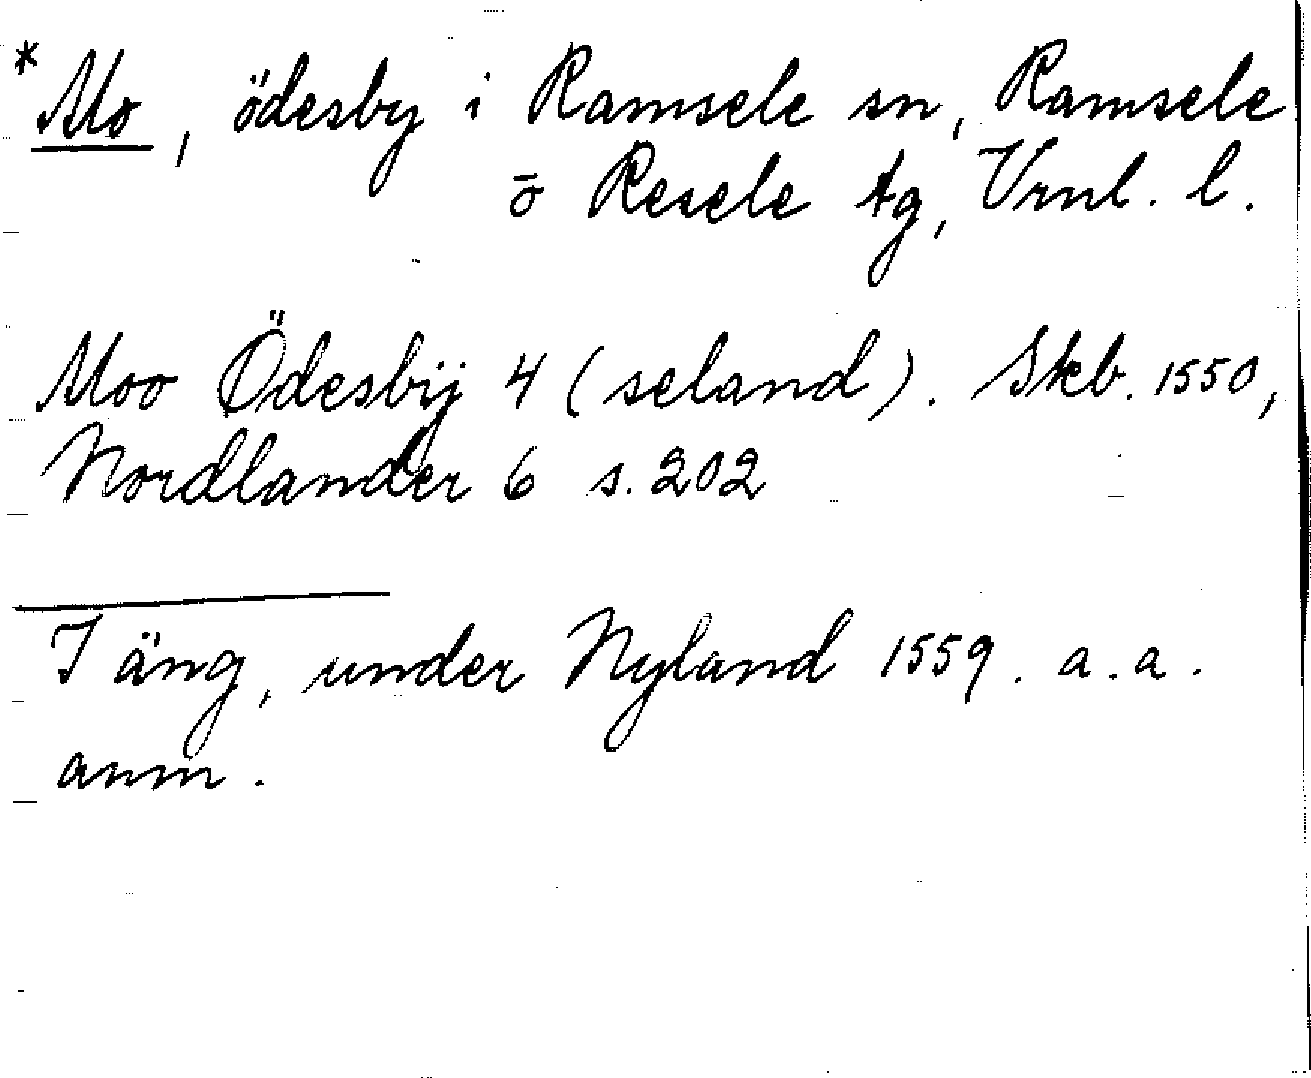 * Mo, ödesby i Ramsele sn, Ramsele
ō Resele tg, Vrnl. l.
Moo Ödesbÿ 4 (seland). Skb. 1550,
Nordlander 6 s. 202
I äng, under Nyland 1559. a.a.
anm.